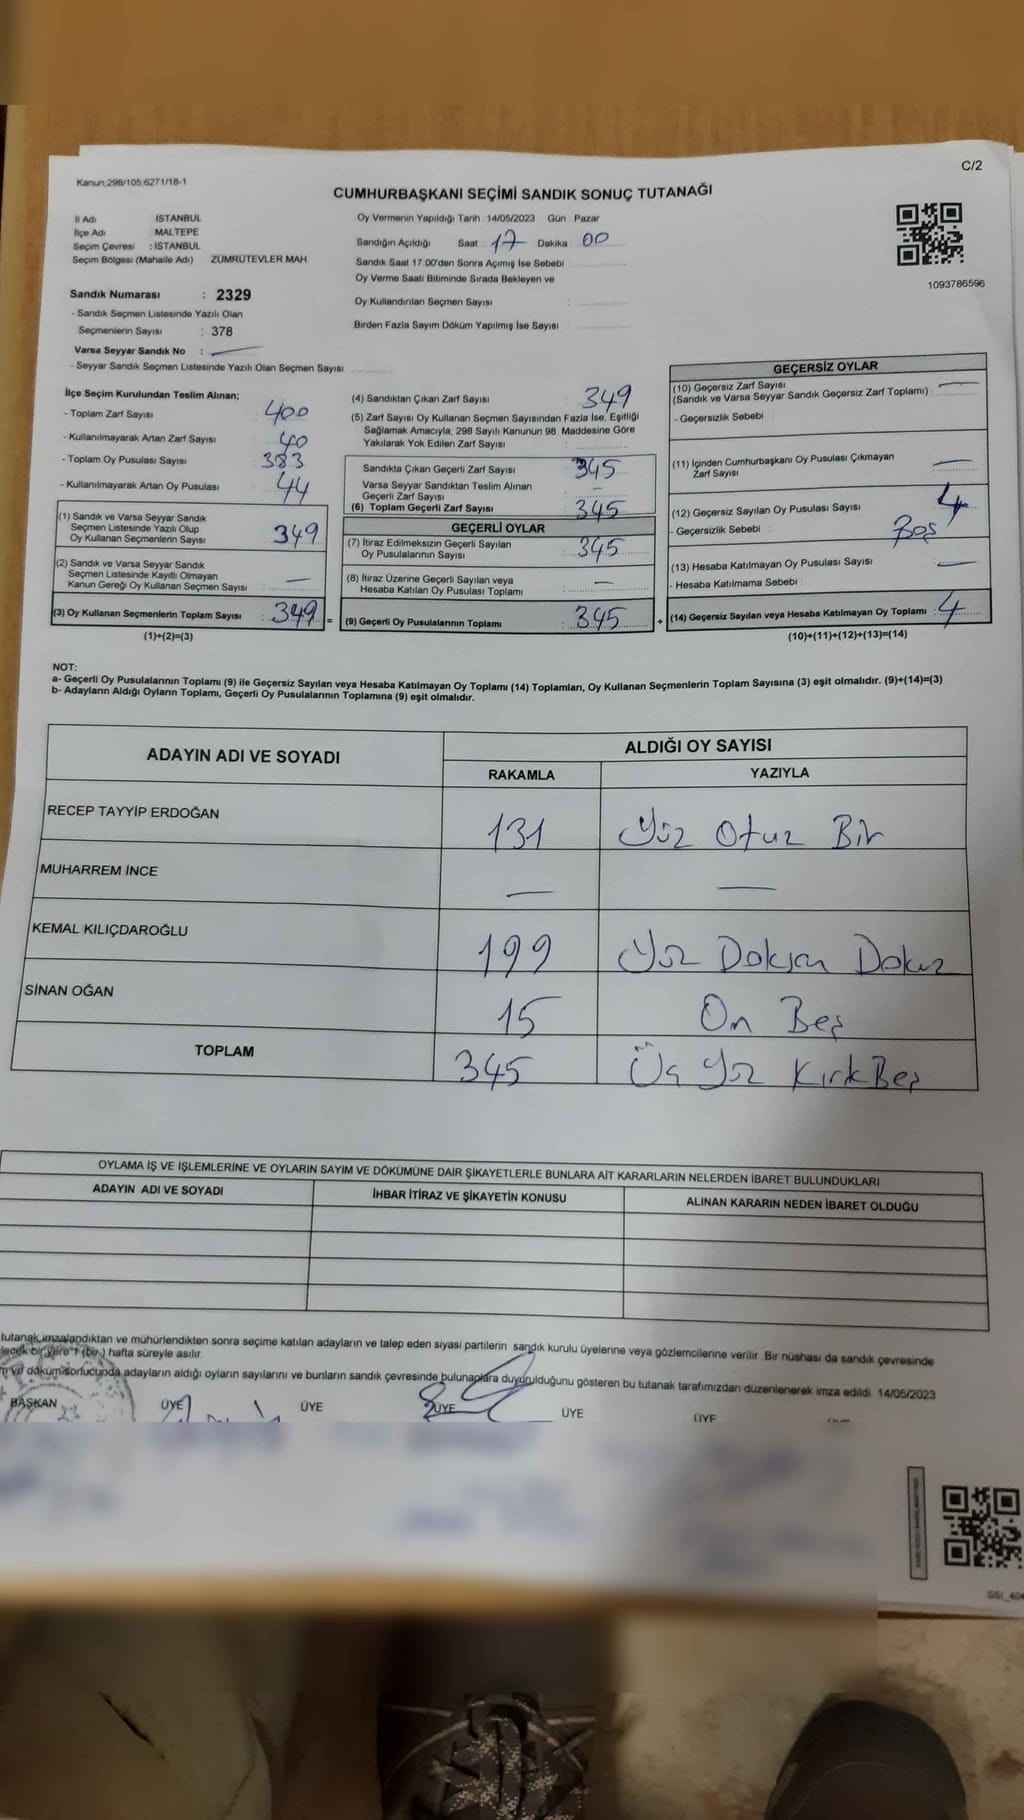 C/2
Kanun;298/105,6271/18-1
CUMHURBAŞKANI SEÇİMİ SANDIK SONUÇ TUTANAĞI
İl Adı İSTANBUL
İlçe Adı MALTEPE
Seçim Çevresi : İSTANBUL
Seçim Bölgesi (Mahalle Adı) ZÜMRÜTEVLER MAH.
Oy Vermenin Yapıldığı Tarih : 14/05/2023 Gün : Pazar
Sandığın Açıldığı Saat : 17 Dakika : 00
Sandık Saat 17.00'den Sonra Açımış İse Sebebi :
Oy Verme Saati Bitiminde Sırada Bekleyen ve
Oy Kullandırılan Seçmen Sayısı :
Birden Fazla Sayım Döküm Yapılmış İse Sayısı :
1093786596
Sandık Numarası : 2329
- Sandık Seçmen Listesinde Yazılı Olan
Seçmenlerin Sayısı : 378
Varsa Seyyar Sandık No : —
- Seyyar Sandık Seçmen Listesinde Yazılı Olan Seçmen Sayısı
İlçe Seçim Kurulundan Teslim Alınan;
- Toplam Zarf Sayısı 400
- Kullanılmayarak Artan Zarf Sayısı : 40
- Toplam Oy Pusulası Sayısı 383
- Kullanılmayarak Artan Oy Pusulası : 44
(1) Sandık ve Varsa Seyyar Sandık
Seçmen Listesinde Yazılı Olup
Oy Kullanan Seçmenlerin Sayısı : 349
(2) Sandık ve Varsa Seyyar Sandık
Seçmen Listesinde Kayıtlı Olmayan
Kanun Gereği Oy Kullanan Seçmen Sayısı : —
(3) Oy Kullanan Seçmenlerin Toplam Sayısı : 349 =
(1)+(2)=(3)
(4) Sandıktan Çıkan Zarf Sayısı : 349
(5) Zarf Sayısı Oy Kullanan Seçmen Sayısından Fazla İse, Eşitliği
Sağlamak Amacıyla, 298 Sayılı Kanunun 98. Maddesine Göre
Yakılarak Yok Edilen Zarf Sayısı :
Sandıkta Çıkan Geçerli Zarf Sayısı 345
Varsa Seyyar Sandıktan Teslim Alınan
Geçerli Zarf Sayısı —
(6) Toplam Geçerli Zarf Sayısı : 345
GEÇERLİ OYLAR
(7) İtiraz Edilmeksizin Geçerli Sayılan
Oy Pusulalarının Sayısı : 345
(8) İtiraz Üzerine Geçerli Sayılan veya
Hesaba Katılan Oy Pusulası Toplamı : —
(9) Geçerli Oy Pusulalarının Toplamı : 345 +
GEÇERSİZ OYLAR
(10) Geçersiz Zarf Sayısı
(Sandık ve Varsa Seyyar Sandık Geçersiz Zarf Toplamı) : —
- Geçersizlik Sebebi :
(11) İçinden Cumhurbaşkanı Oy Pusulası Çıkmayan
Zarf Sayısı —
(12) Geçersiz Sayılan Oy Pusulası Sayısı : 4
- Geçersizlik Sebebi : Boş
(13) Hesaba Katılmayan Oy Pusulası Sayısı : —
- Hesaba Katılmama Sebebi :
(14) Geçersiz Sayılan veya Hesaba Katılmayan Oy Toplamı : 4
(10)+(11)+(12)+(13)=(14)
NOT:
a- Geçerli Oy Pusulalarının Toplamı (9) ile Geçersiz Sayılan veya Hesaba Katılmayan Oy Toplamı (14) Toplamları, Oy Kullanan Seçmenlerin Toplam Sayısına (3) eşit olmalıdır. (9)+(14)=(3)
b- Adayların Aldığı Oyların Toplamı, Geçerli Oy Pusulalarının Toplamına (9) eşit olmalıdır.
ADAYIN ADI VE SOYADI ALDIĞI OY SAYISI
RAKAMLA YAZIYLA
RECEP TAYYİP ERDOĞAN 131 Yüz Otuz Bir
MUHARREM İNCE — —
KEMAL KILIÇDAROĞLU 199 Yüz Doksan Dokuz
SİNAN OĞAN 15 On Beş
TOPLAM 345 Üç Yüz Kırk Beş
OYLAMA İŞ VE İŞLEMLERİNE VE OYLARIN SAYIM VE DÖKÜMÜNE DAİR ŞİKAYETLERLE BUNLARA AİT KARARLARIN NELERDEN İBARET BULUNDUKLARI
ADAYIN ADI VE SOYADI İHBAR İTİRAZ VE ŞİKAYETİN KONUSU ALINAN KARARIN NEDEN İBARET OLDUĞU
tutanak imzalandıktan ve mühürlendikten sonra seçime katılan adayların ve talep eden siyasi partilerin sandık kurulu üyelerine veya gözlemcilerine verilir. Bir nüshası da sandık çevresinde
lecek bir yere 1 (bir) hafta süreyle asılır.
m ve döküm sonucunda adayların aldığı oyların sayılarını ve bunların sandık çevresinde bulunanlara duyurulduğunu gösteren bu tutanak tarafımızdan düzenlenerek imza edildi. 14/05/2023
BAŞKAN ÜYE ÜYE ÜYE ÜYE ÜYE